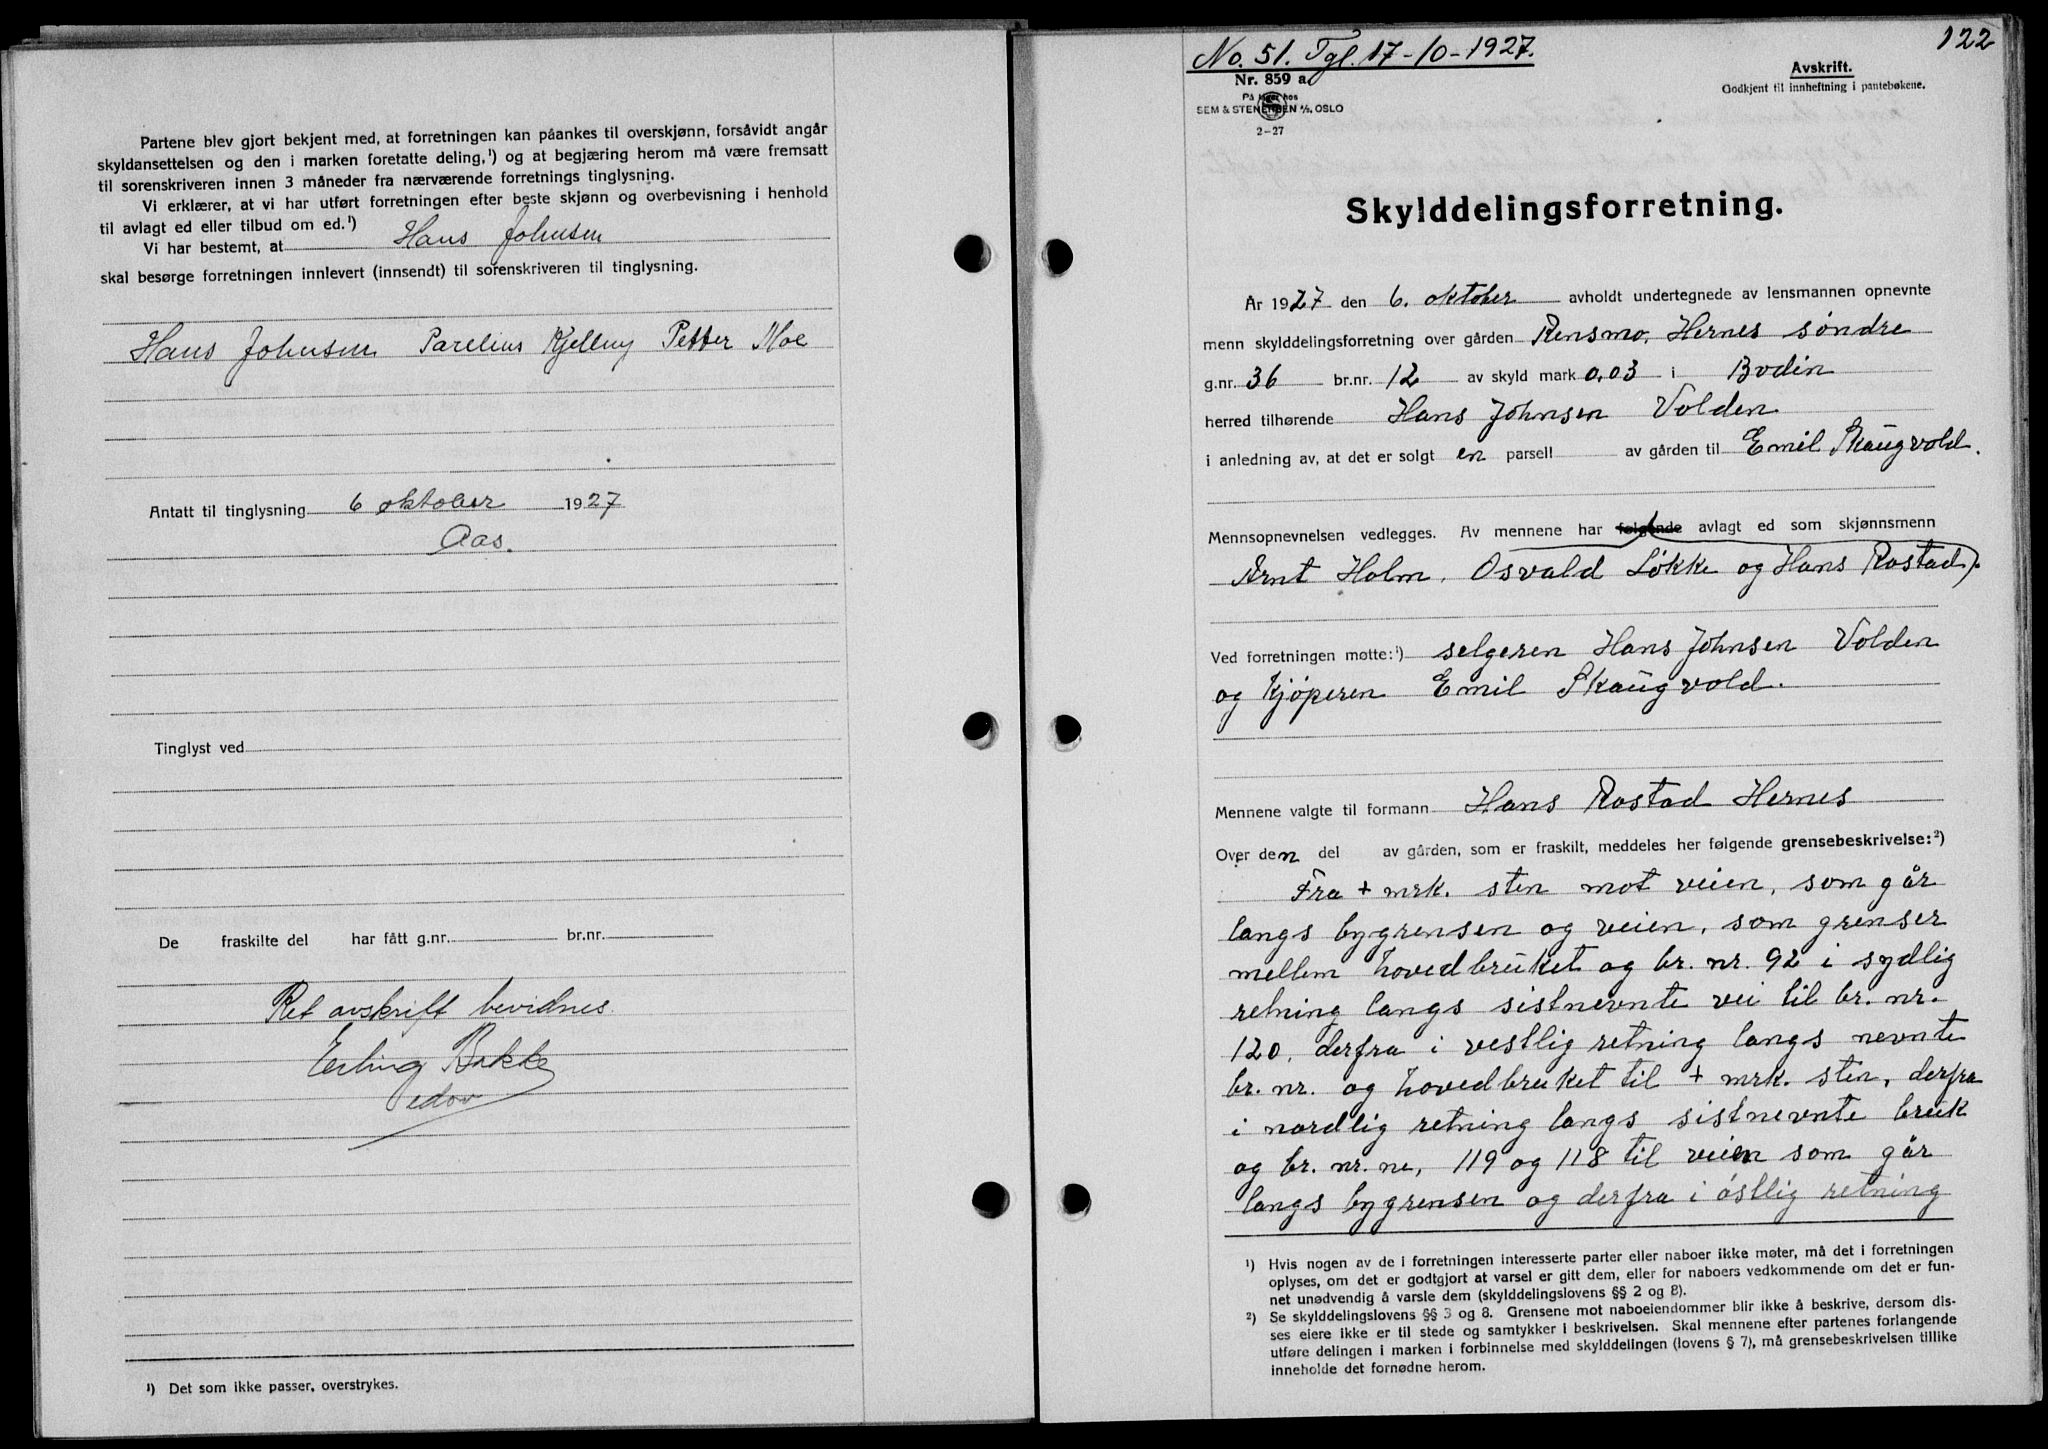 Partene blev gjort bekjent med, at forretningen kan påankes til overskjønn, forsåvidt angår
skyldansettelsen og den i marken foretatte deling,¹) og at begjæring herom må være fremsatt
til sorenskriveren innen 3 måneder fra nærværende forretnings tinglysning.
Vi erklærer, at vi har utført forretningen efter beste skjønn og overbevisning i henhold
til avlagt ed eller tilbud om ed.¹)
Vi har bestemt, at Hans Johnsen
skal besørge forretningen innlevert (innsendt) til sorenskriveren til tinglysning.
Hans Johnsen Parelius Kjelling Petter Moe
Antatt til tinglysning 6 oktober 1927
Aas.
Tinglyst ved
De fraskilte del har fått g.nr. br.nr.
Ret avskrift bevidnes
Erling Bakke
edsv
¹) Det som ikke passer, overstrykes.
122
No. 51. Tgl. 17-10-1927.
Nr. 859 a
På lager hos
SEM & STENERSEN A/S, OSLO
2-27
Avskrift.
Godkjent til innheftning i pantebøkene.
Skylddelingsforretning.
År 1927 den 6. oktober avholdt undertegnede av lensmannen opnevnte
menn skylddelingsforretning over gården Rensmo, Hernes søndre
g.nr. 36 br.nr. 12 av skyld mark 0,03 i Bodin
herred tilhørende Hans Johnsen Volden
i anledning av, at det er solgt en parsell av gården til Emil Skaugvold.
Mennsopnevnelsen vedlegges. Av mennene har følgende avlagt ed som skjønnsmenn
Arnt Holm, Osvald Løkke og Hans Rostad).
Ved forretningen møtte:¹) selgeren Hans Johnsen Volden
og kjøperen Emil Skaugvold.
Mennene valgte til formann Hans Rostad Hernes
Over den del av gården, som er fraskilt, meddeles her følgende grensebeskrivelse:²)
Fra + mrk. sten mot veien, som går
langs bygrensen og veien, som grenser
mellem hovedbruket og br. nr. 92 i sydlig
retning langs sistnevnte vei til br. nr.
120, derfra i vestlig retning langs nevnte
br. nr. og hovedbruket til + mrk. sten, derfra
i nordlig retning langs sistnevnte bruk
og br. nr. ne, 119 og 118 til veien som går
langs bygrensen og derfra i østlig retning
¹) Hvis nogen av de i forretningen interesserte parter eller naboer ikke møter, må det i forretningen
oplyses, om det er godtgjort at varsel er gitt dem, eller for naboers vedkommende om det er fun-
net unødvendig å varsle dem (skylddelingslovens §§ 2 og 8).
²) Se skylddelingslovens §§ 3 og 8. Grensene mot naboeiendommer blir ikke å beskrive, dersom dis-
ses eiere ikke er til stede og samtykker i beskrivelsen. Skal mennene efter partenes forlangende
utføre delingen i marken i forbinnelse med skylddelingen (lovens § 7), må grensebeskrivelsen tillike
inneholde det fornødne herom.